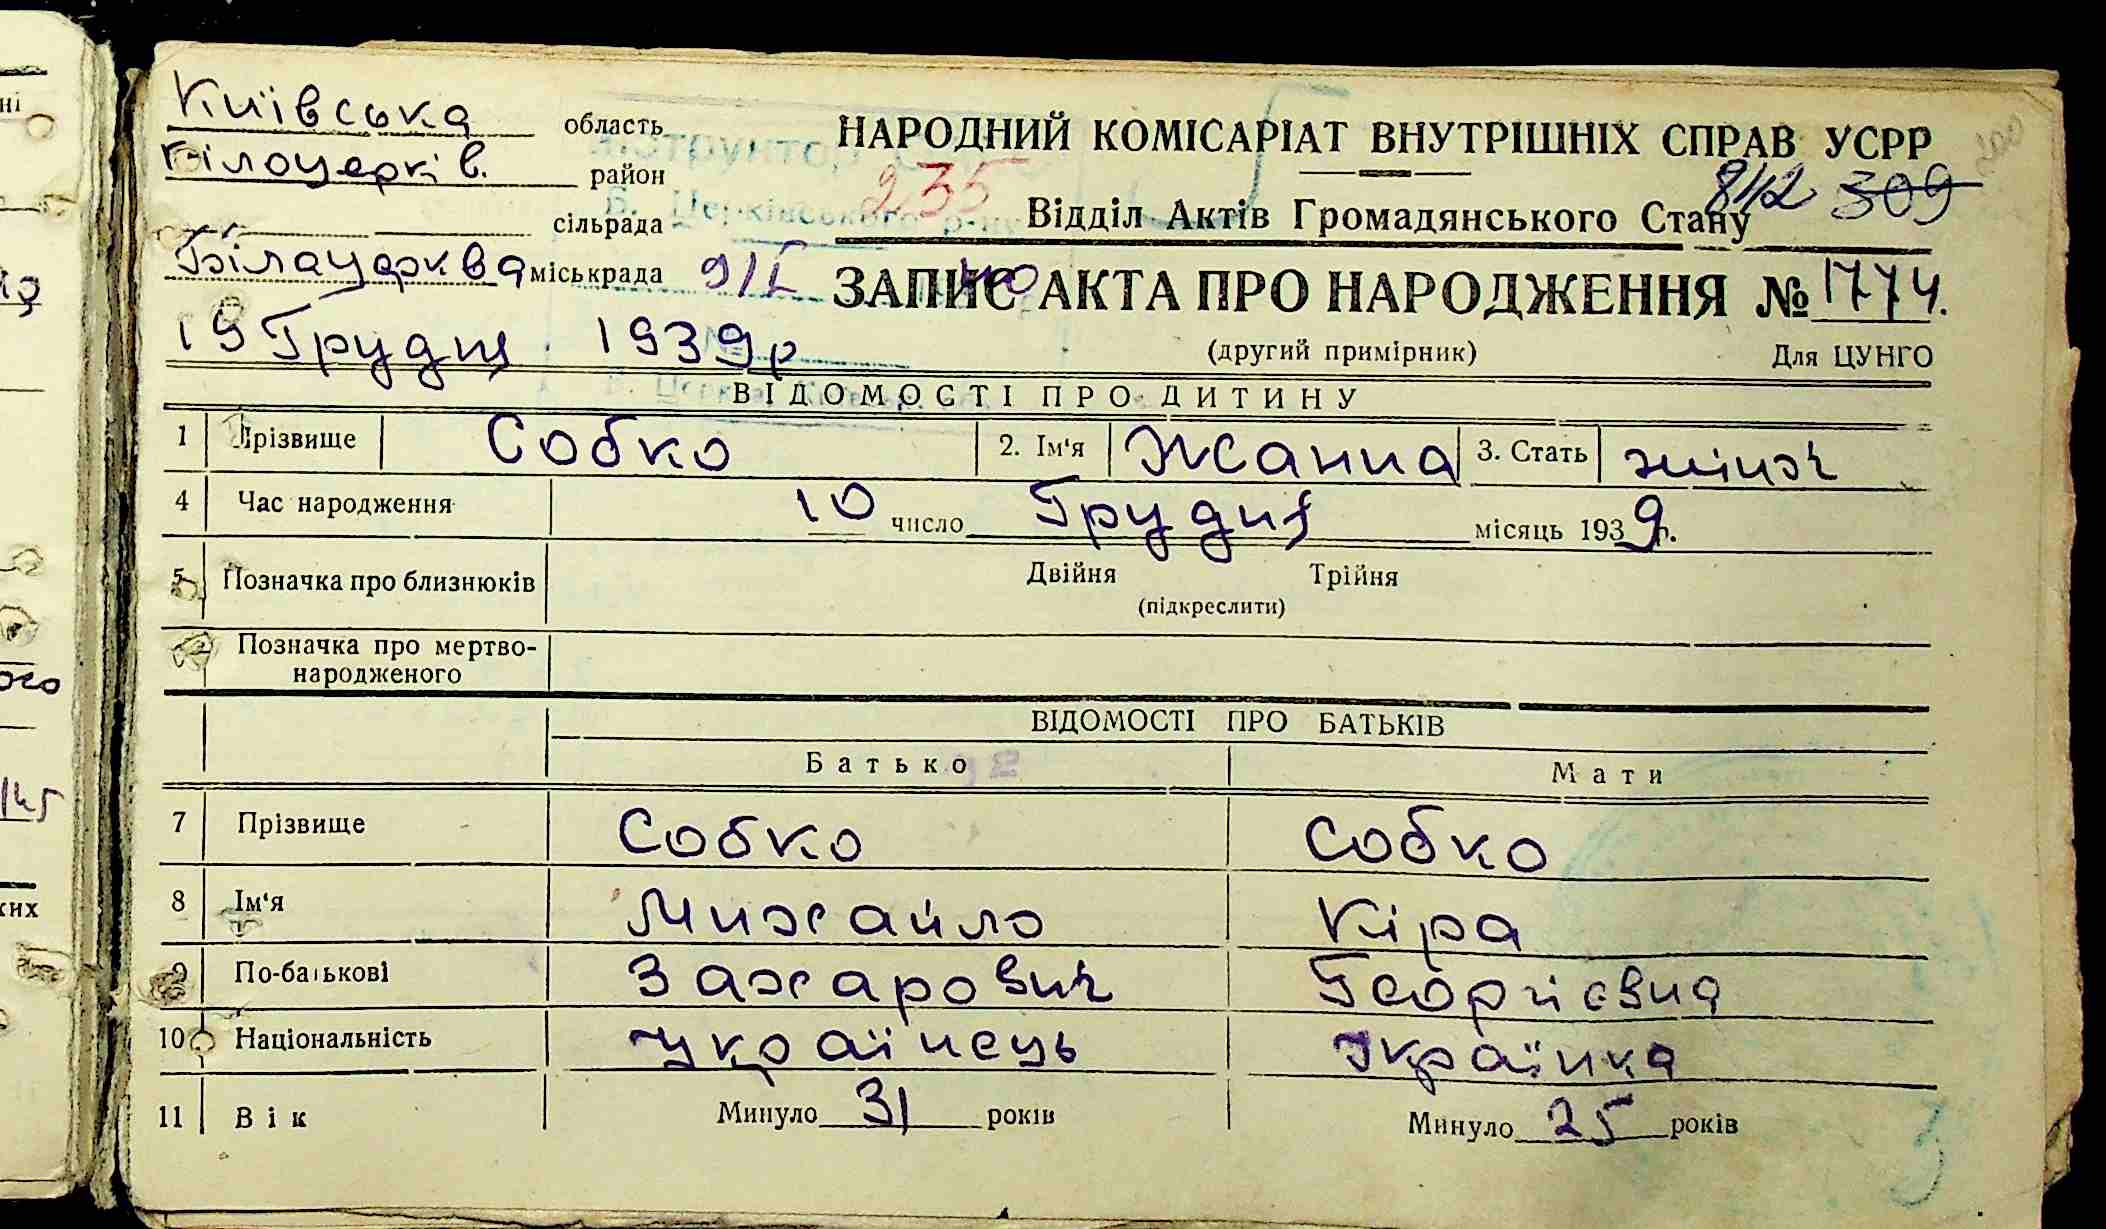 Київська область
Білоцерків. район
сільрада
Біла церква міськрада
19 Грудня 1939 р
НАРОДНИЙ КОМІСАРІАТ ВНУТРІШНІХ СПРАВ УСРР
235
309
Відділ Актів Громадянського Стану
ЗАПИС АКТА ПРО НАРОДЖЕННЯ № 1774.
(другий примірник) Для ЦУНГО
ВІДОМОСТІ ПРО ДИТИНУ
1 Прізвище Собко 2. Ім'я Жанна 3. Стать жіноч
4 Час народження 10 число Грудня місяць 1939 р.
5 Позначка про близнюків Двійня Трійня
(підкреслити)
Позначка про мертво-
народженого
ВІДОМОСТІ ПРО БАТЬКІВ
Батько Мати
7 Прізвище Собко Собко
8 Ім'я Михайло Кіра
9 По-батькові Захарович Георгієвна
10 Національність українець Українка
11 Вік Минуло 31 років Минуло 25 років